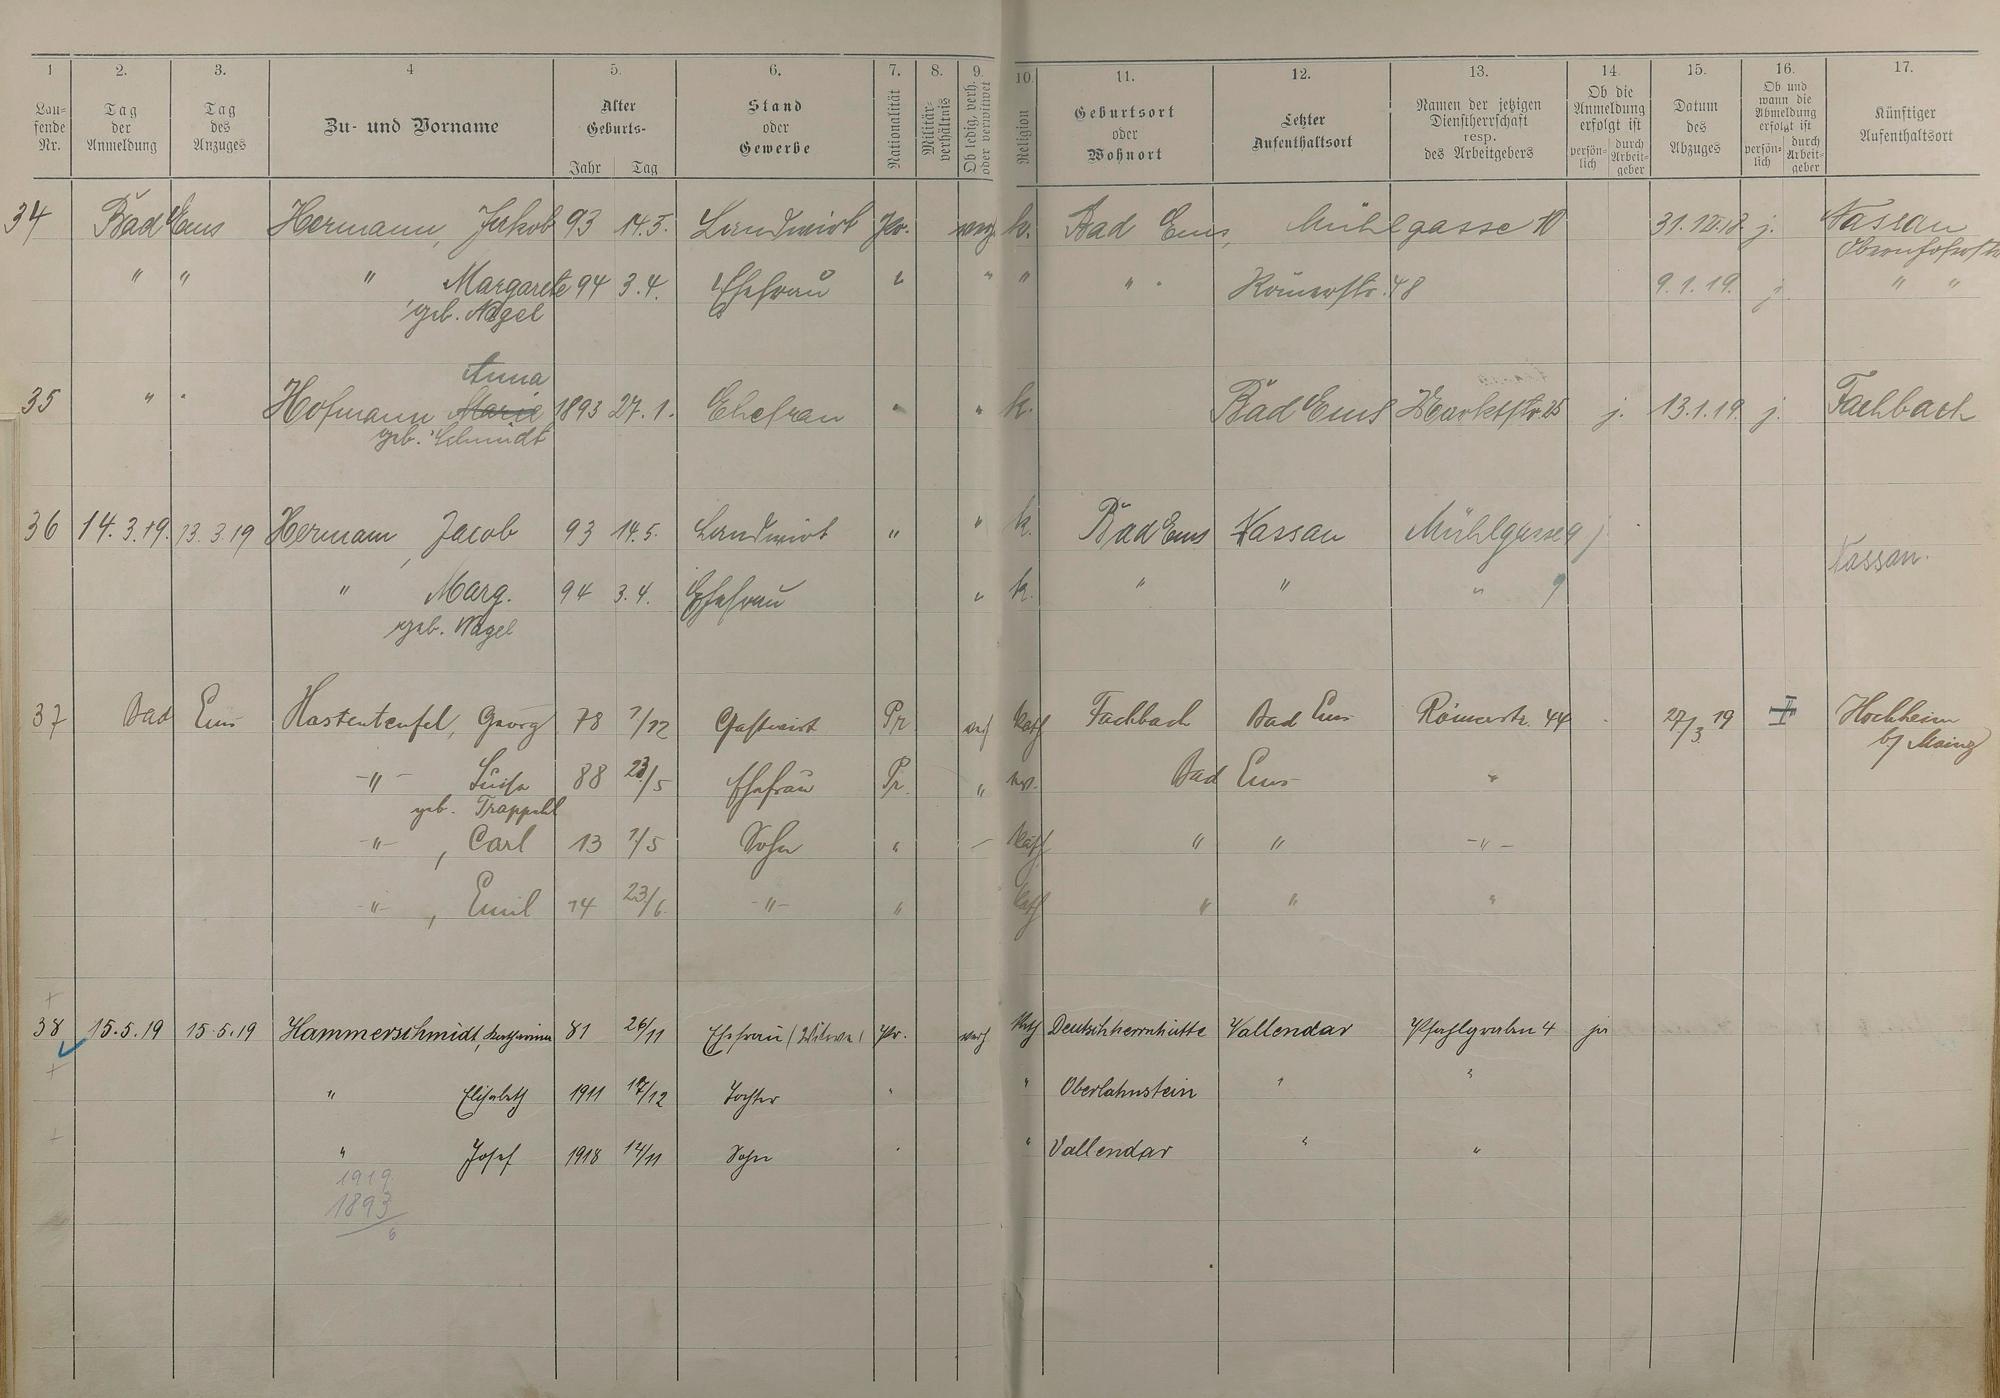 1 2. 3. 4 5. 6. 7. 8. 9. 10. 11. 12. 13. 14. 15. 16. 17.
Lau-fende Nr. Tag der Anmeldung Tag des Anzuges Zu- und Vorname Alter Geburts- Jahr Tag Stand oder Gewerbe Nationalität Militär-verhältnis Ob ledig, verh. oder verwitwet Religion Geburtsort oder Wohnort Letzter Aufenthaltsort Namen der jetzigen Dienstherrschaft resp. des Arbeitgebers Ob die Anmeldung erfolgt ist persön-lich durch Arbeit-geber Datum des Abzuges Ob und wann die Abmeldung erfolgt ist persön-lich durch Arbeit-geber Künftiger Aufenthaltsort
34 Bad Ems Hermann, Jakob 93 14.5. Landwirt Pr. verh. k. Bad Ems, Mühlgasse 10 31.12.18. j. Nassau
" " " Margarete 94 3.4. Ehefrau " " " " " Römerstr. 48 9.1.19. j. " "
geb. Nagel
Anna
35 " " Hofmann Marie 1893 27.1. Ehefrau " " k. Bad Ems Marktstr. 25 j. 13.1.19. j. Fachbach
geb. Schmidt
36 14.3.19. 13.3.19 Hermann, Jacob 93 14.5. Landwirt " " k. Bad Ems Nassau Mühlgasse 9 j
Nassau.
" Marg. 94 3.4. Ehefrau " k. " " " 9
geb. Nagel
37 Bad Ems Hastenteufel, Georg 78 7/12 Gastwirt Pr verh kath Fachbach Bad Ems Römerstr. 44 27/3 19 Hochheim
b/ Mainz
-"- Luise 88 23/5 Ehefrau Pr. " ev. Bad Ems "
geb. Trappehl
-"- , Carl 13 7/5 Sohn " - kath " " -"-
-"- , Emil 14 23/6. -"- " kath " " "
38 15.5.19 15.5.19 Hammerschmidt, Katharina 81 26/11 Ehefrau (Witwe) Pr. verh kath Deutschherrnhütte Vallendar Pfahlgraben 4 ja
" Elisabeth 1911 17/12 Tochter " " Oberlahnstein " "
" Josef 1918 14/11 Sohn " " Vallendar " "
1919
1893
6